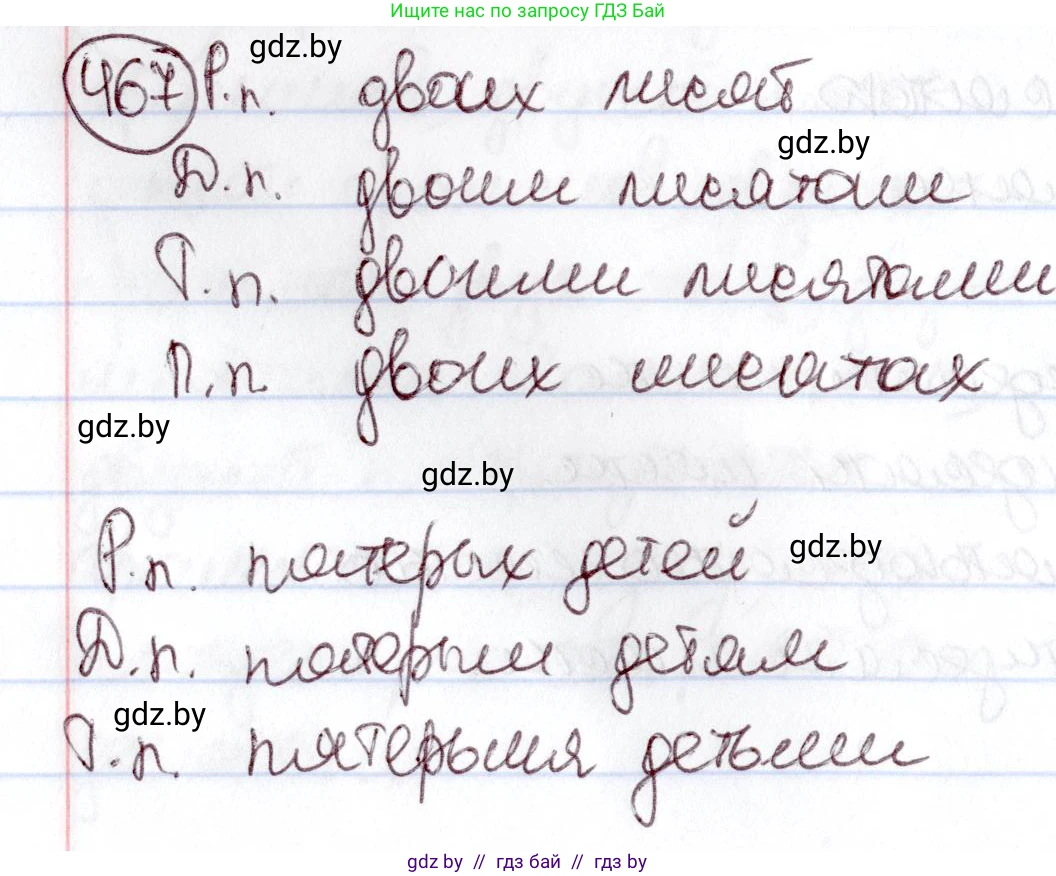 Ищите нас по запросу ГДЗ Бай
gdz.by
467 Р.п. двоих лисят
gdz.by
Д.п. двоим лисятам
Т.п. двоими лисятами
П.п. двоих лисятах
gdz.by
gdz.by
Р.п. пятерых детей
gdz.by
Д.п. пятерым детям
gdz.by
Т.п. пятерымя детьми
gdz by // гдз бай // гдз by